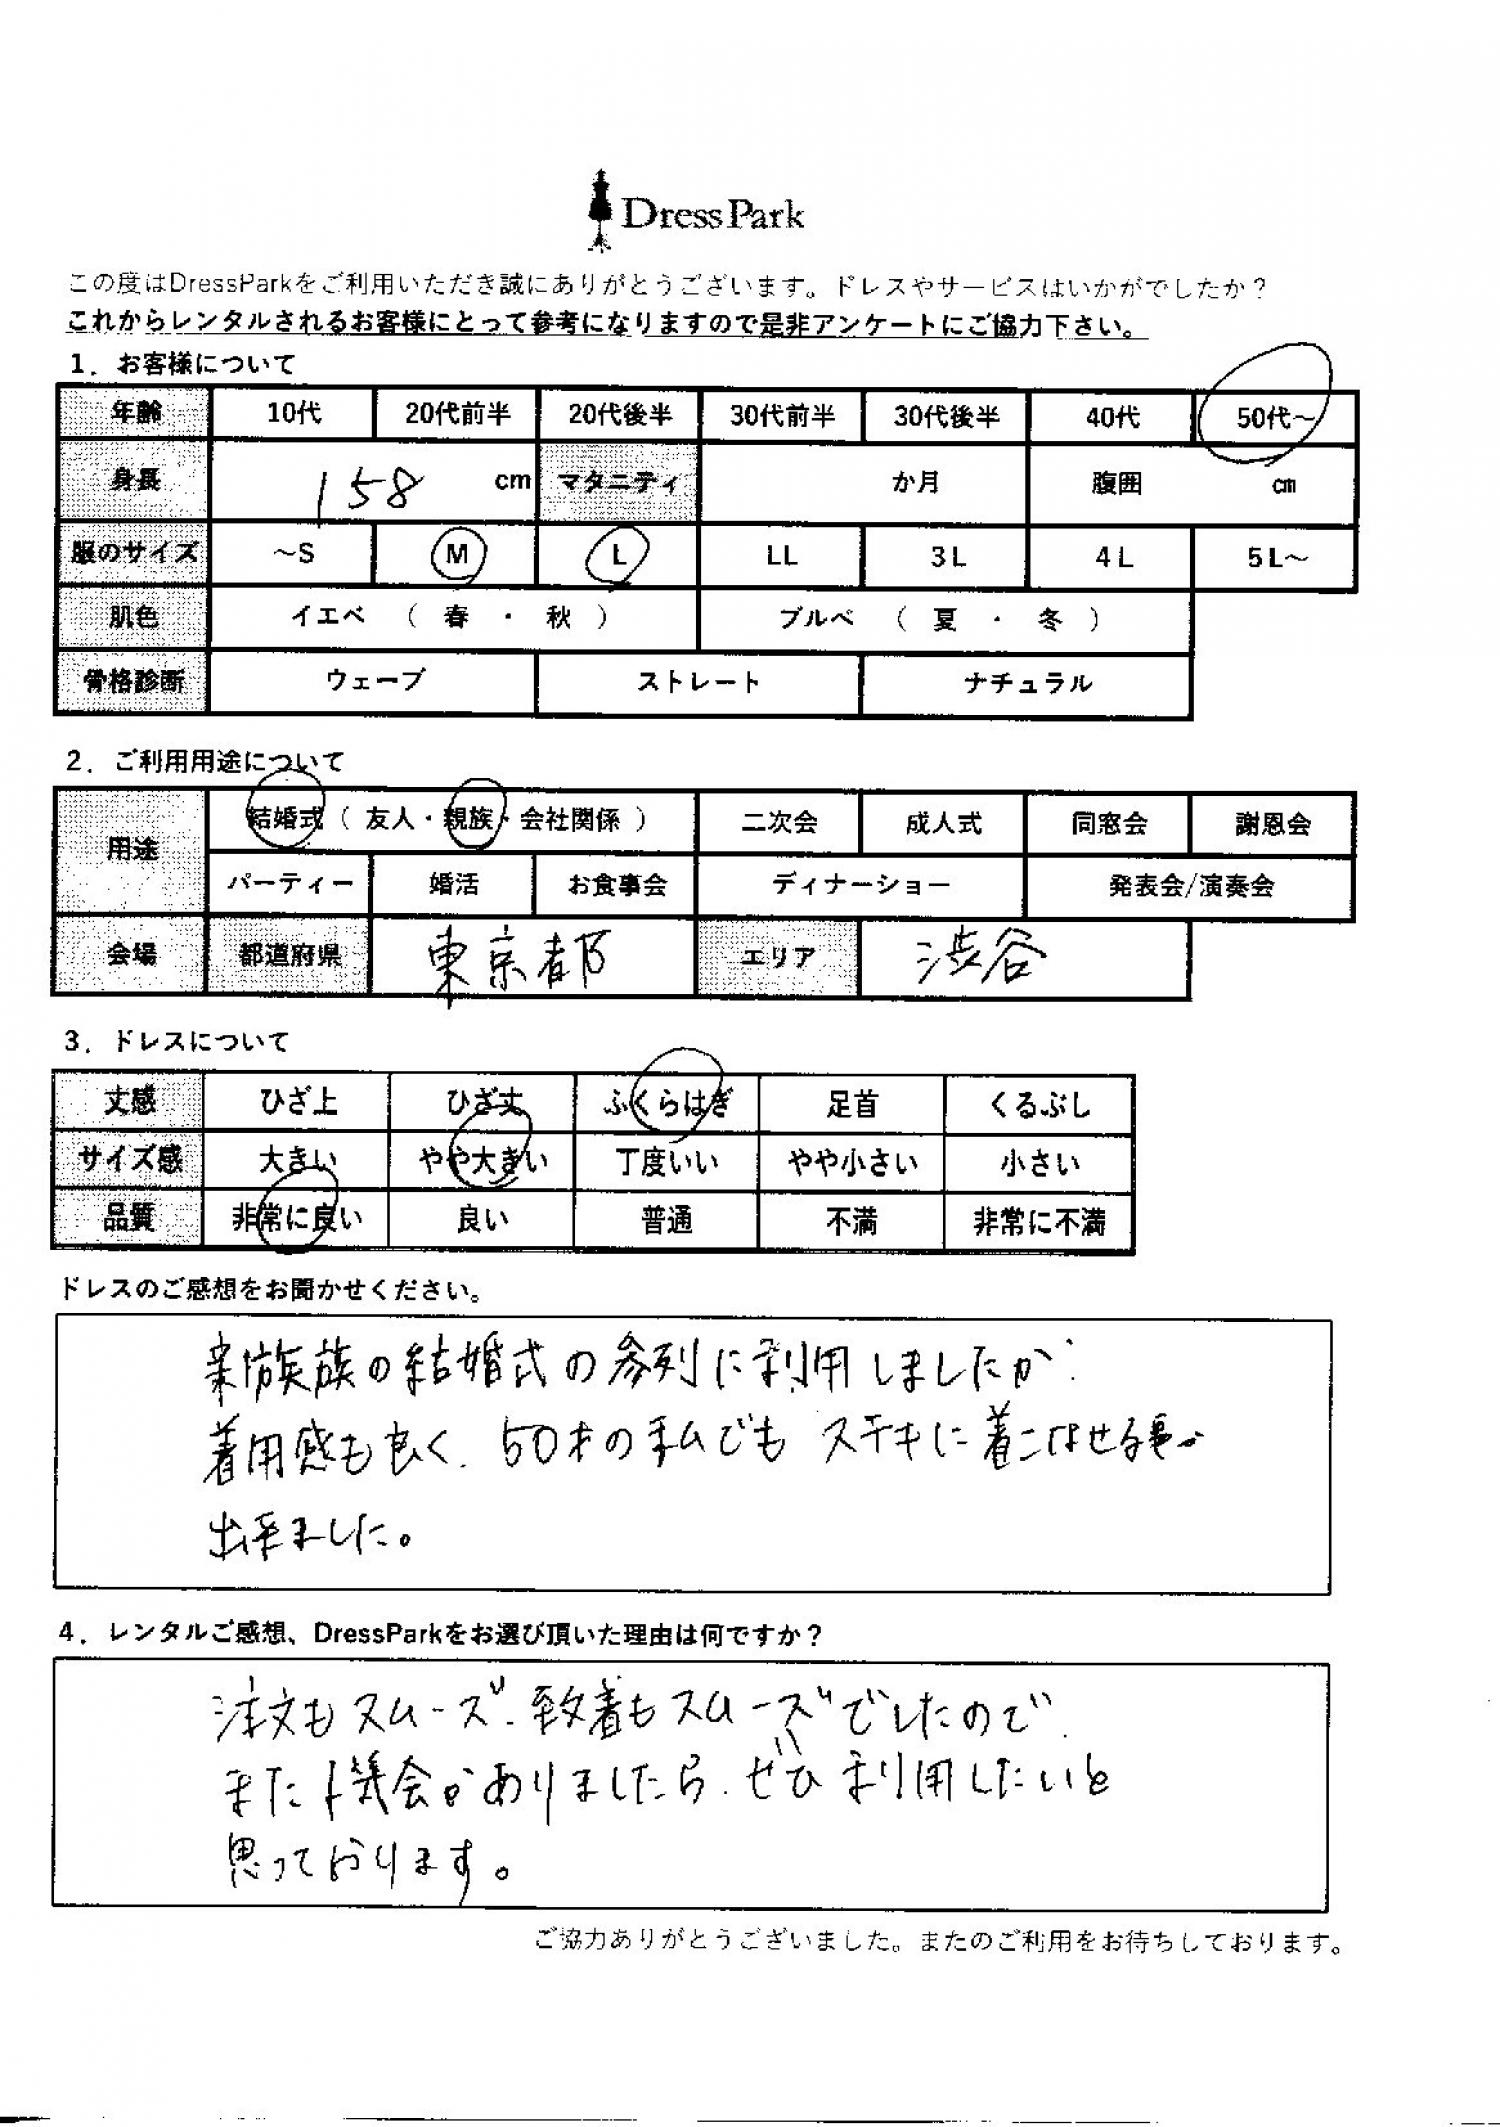 DressPark
この度はDressParkをご利用いただき誠にありがとうございます。ドレスやサービスはいかがでしたか？
これからレンタルされるお客様にとって参考になりますので是非アンケートにご協力下さい。
1．お客様について
年齢 10代 20代前半 20代後半 30代前半 30代後半 40代 50代～
身長 158 cm マタニティ か月 腹囲 cm
服のサイズ ～S M L LL 3L 4L 5L～
肌色 イエベ （ 春 ・ 秋 ） ブルベ （ 夏 ・ 冬 ）
骨格診断 ウェーブ ストレート ナチュラル
2．ご利用用途について
用途 結婚式（ 友人・親族・会社関係 ） 二次会 成人式 同窓会 謝恩会
パーティー 婚活 お食事会 ディナーショー 発表会/演奏会
会場 都道府県 東京都 エリア 渋谷
3．ドレスについて
丈感 ひざ上 ひざ丈 ふくらはぎ 足首 くるぶし
サイズ感 大きい やや大きい 丁度いい やや小さい 小さい
品質 非常に良い 良い 普通 不満 非常に不満
ドレスのご感想をお聞かせください。
族の結婚式の参列に利用しましたが
着用感も良く、50才の私でも ステキに着こなせる事が
出来ました。
4．レンタルご感想、DressParkをお選び頂いた理由は何ですか？
注文もスムーズ、到着もスムーズでしたので、
また機会がありましたら、ぜひ利用したいと
思っております。
ご協力ありがとうございました。またのご利用をお待ちしております。